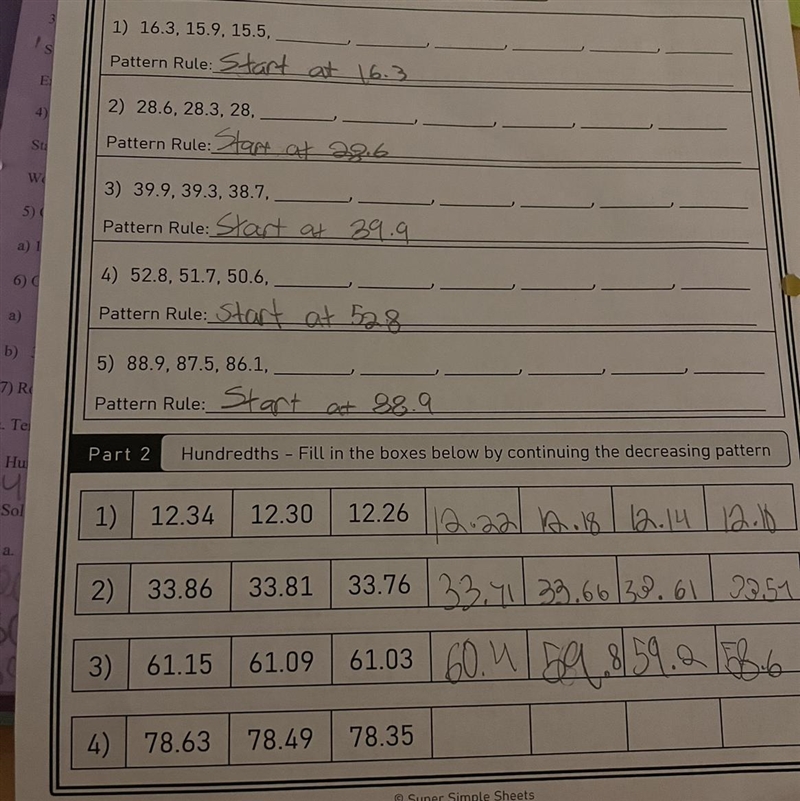 1) 16.3, 15.9, 15.5, ____, ____, ____, ____, ____
Pattern Rule: Start at 16.3
2) 28.6, 28.3, 28, ____, ____, ____, ____, ____
Pattern Rule: Start at 28.6
3) 39.9, 39.3, 38.7, ____, ____, ____, ____, ____
Pattern Rule: Start at 39.9
4) 52.8, 51.7, 50.6, ____, ____, ____, ____, ____
Pattern Rule: Start at 52.8
5) 88.9, 87.5, 86.1, ____, ____, ____, ____, ____
Pattern Rule: Start at 88.9
Part 2 Hundredths - Fill in the boxes below by continuing the decreasing pattern
1) 12.34 12.30 12.26 12.22 12.18 12.14 12.10
2) 33.86 33.81 33.76 33.71 33.66 33.61
3) 61.15 61.09 61.03 60.4 59.8 59.2 58.6
4) 78.63 78.49 78.35
© Super Simple Sheets
4)
5)
a)
6)
a)
b)
7)
Sol
a.